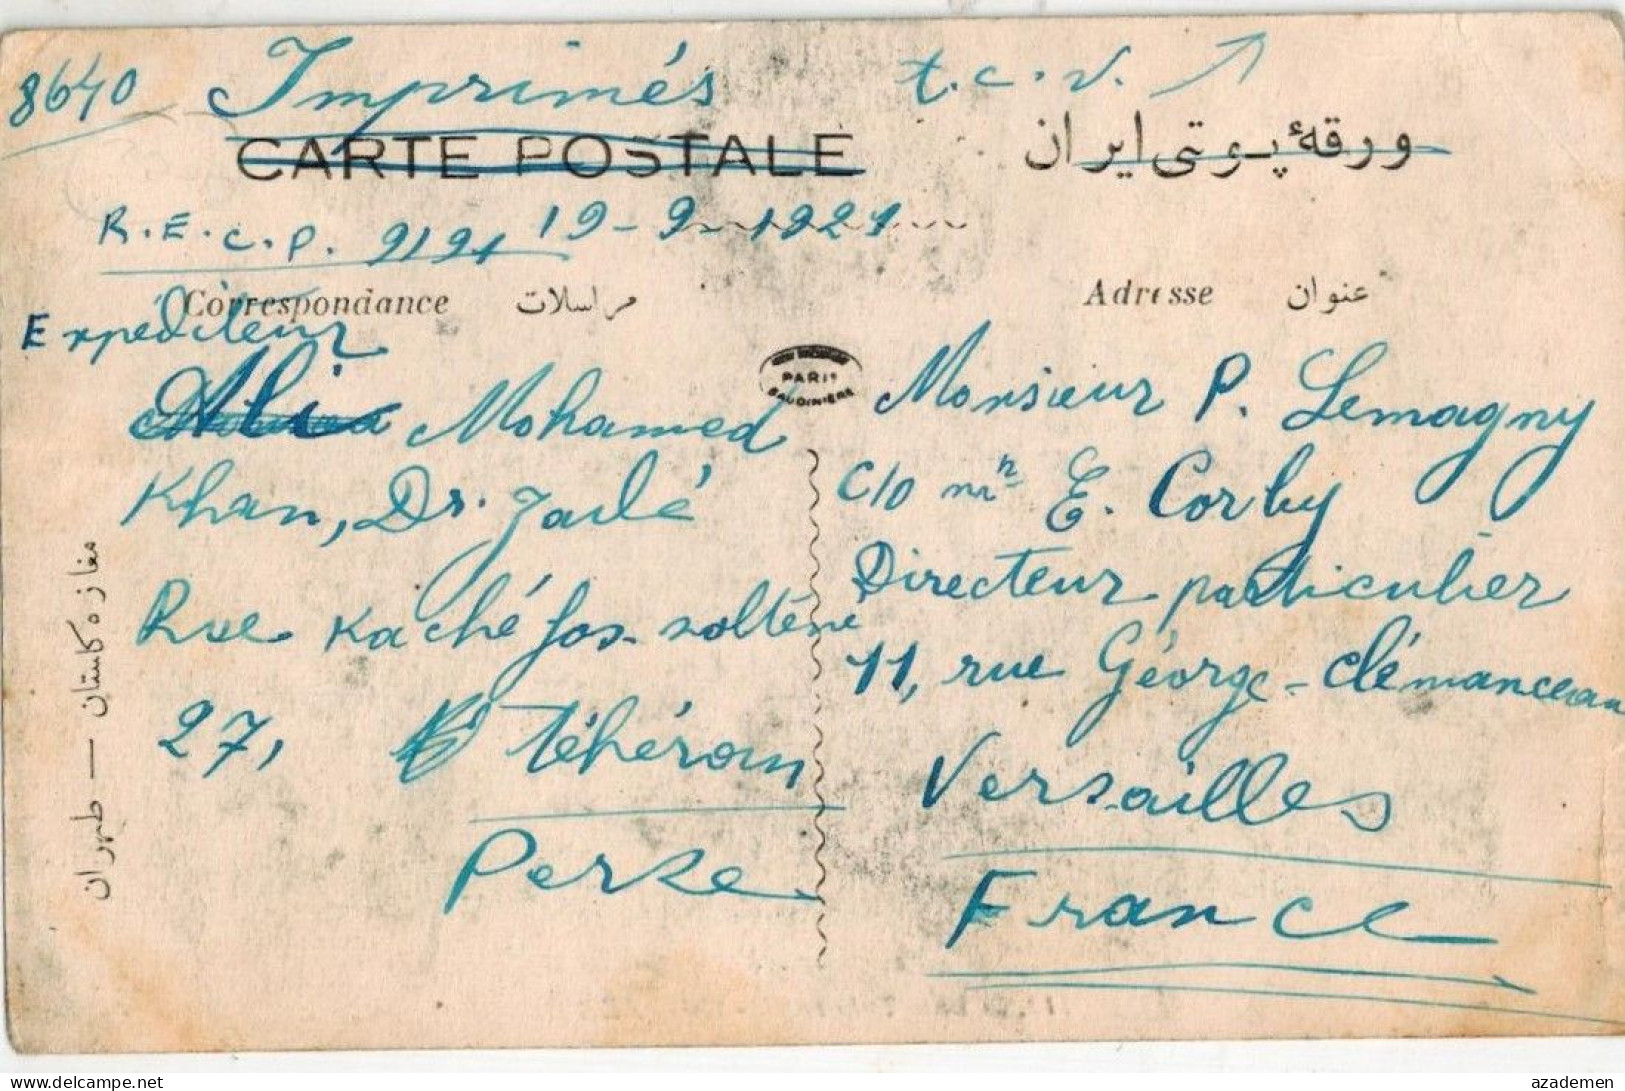 8640 Imprimés t.c.v.
CARTE POSTALE ورقهٔ پوستی ایران
R.E.C.P. 9191 19-9-1921
Correspondance مراسلات
Adresse عنوان
Expéditeur
Ali Mohamed
Khan, Dr. Zadé
Rue Kaché fos-solténé
27, Téhéran
Perse
PARIS
Monsieur P. Lemagny
c/o mr E. Corby
Directeur particulier
11, rue Géorge-Clémanceau
Versailles
France
مغازه گلستان — طهران
azademen